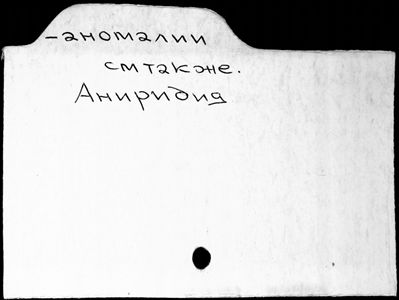 -аномалии
см также.
Аниридия